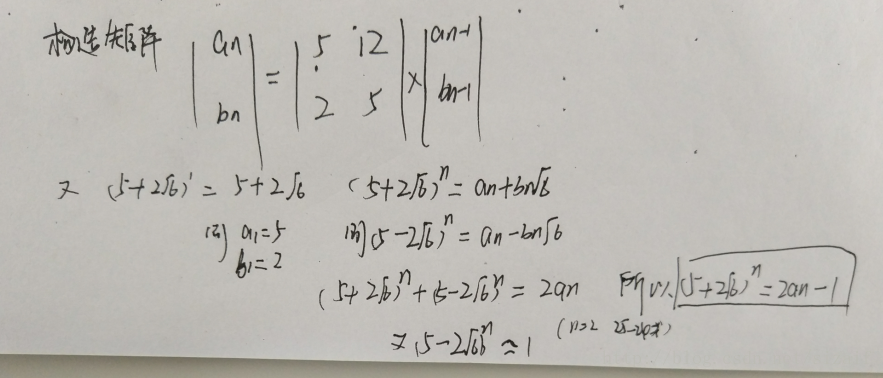 构造矩阵 |an bn| = |5 12 2 5| × |an-1 bn-1|
又 (5+2√6)¹ = 5+2√6 (5+2√6)ⁿ = an+bn√6
则 a1=5 则(5-2√6)ⁿ = an-bn√6
b1=2
(5+2√6)ⁿ+(5-2√6)ⁿ = 2an 所以 (5+2√6)ⁿ = 2an-1
又(5-2√6)ⁿ ≈ 1 (n=2